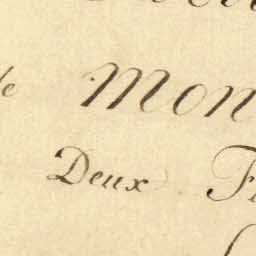 de Mon
Deux F